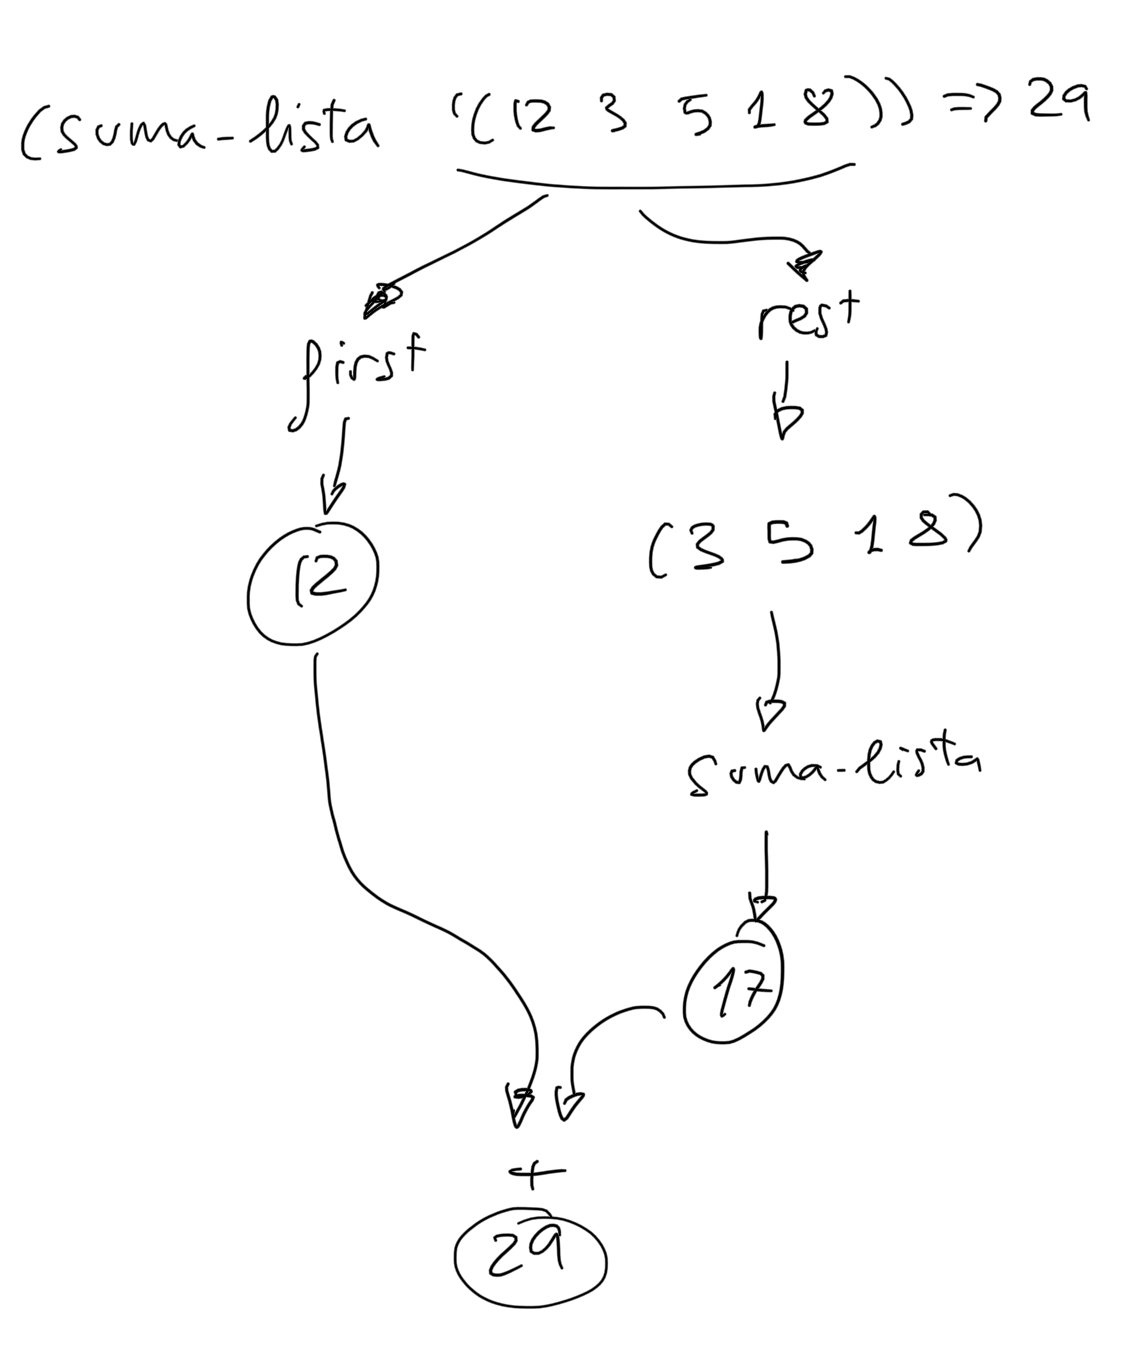 (suma-lista '(12 3 5 1 8)) => 29
first
rest
12
(3 5 1 8)
suma-lista
17
+
29